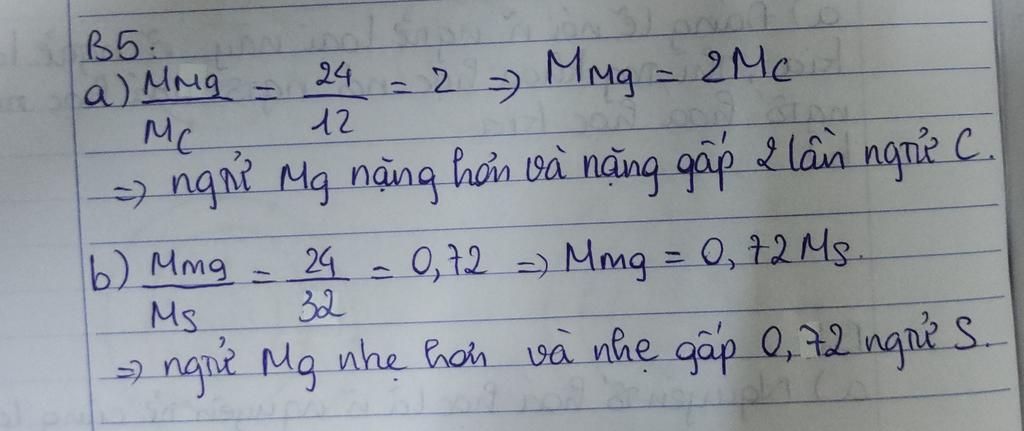 B5:
a) MMg/MC = 24/12 = 2 => MMg = 2MC
=> ngtử Mg nặng hơn và nặng gấp 2 lần ngtử C.
b) MMg/MS = 24/32 = 0,72 => MMg = 0,72 MS.
=> ngtử Mg nhẹ hơn và nhẹ gấp 0,72 ngtử S.